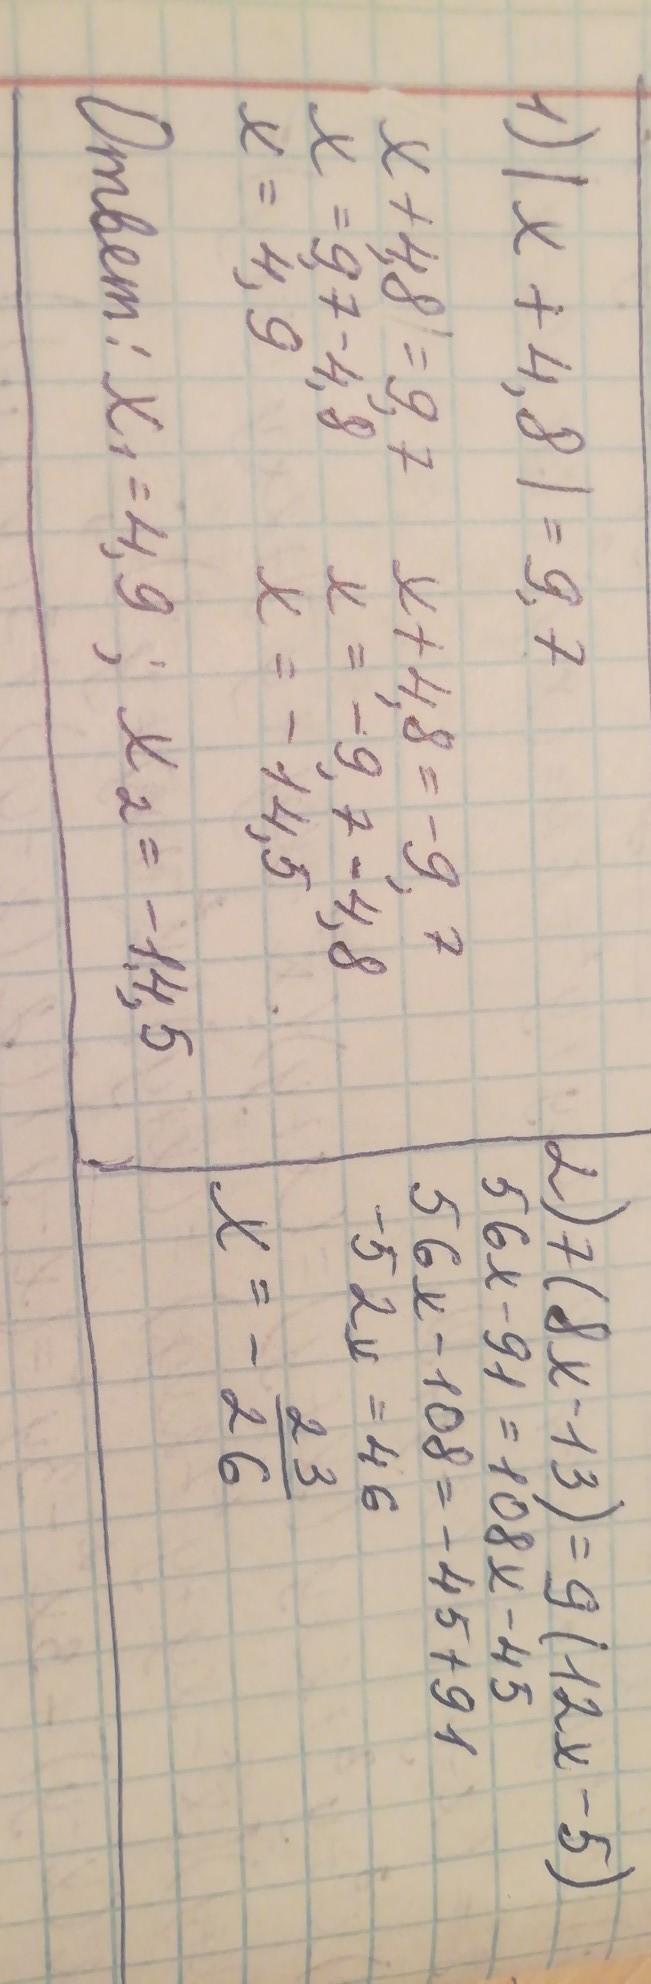 1) |x + 4,8| = 9,7
x + 4,8 = 9,7   x + 4,8 = -9,7
x = 9,7 - 4,8   x = -9,7 - 4,8
x = 4,9   x = -14,5
Ответ: x1 = 4,9 ; x2 = -14,5
2) 7(8x - 13) = 9(12x - 5)
56x - 91 = 108x - 45
56x - 108 = -45 + 91
-52x = 46
x = - 23/26